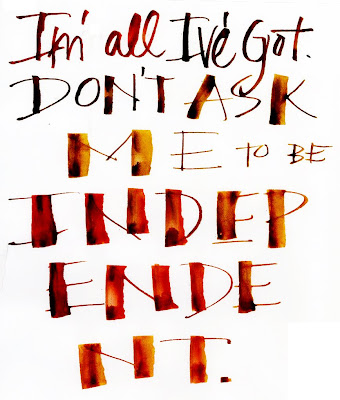 I'm all I've Got.
DON'T ASK
ME TO BE
INDEP
ENDE
NT.